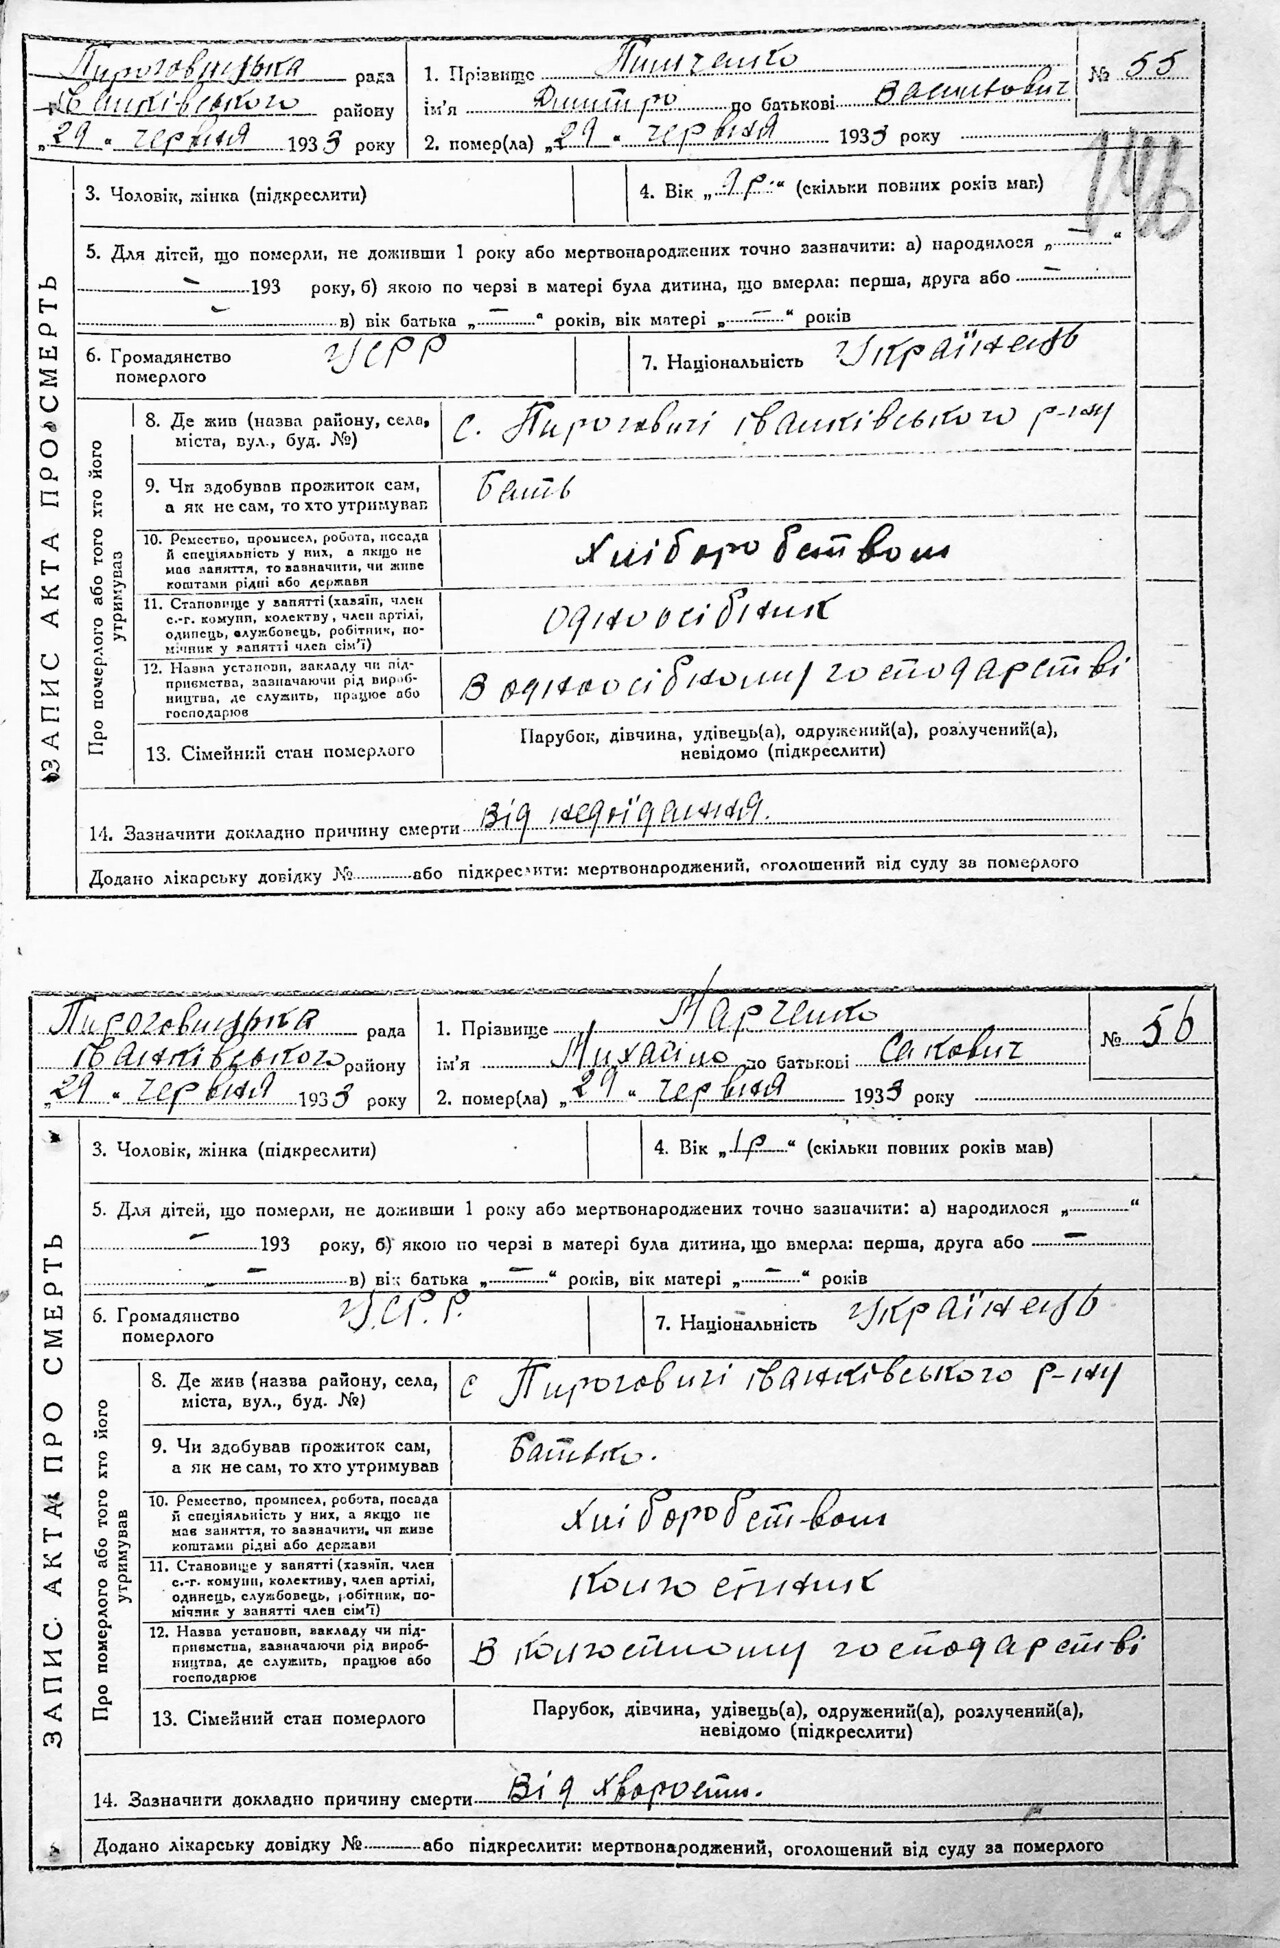 Пироговицька рада
Іванківського району
„29 “ червня 1933 року
1. Прізвище Пинченко
ім'я Дмитро по батькові Васильович
2. помер(ла) „29 “ червня 1933 року
№ 55
146
ЗАПИС АКТА ПРО СМЕРТЬ
3. Чоловік, жінка (підкреслити)
4. Вік „ 1 р. “ (скільки повних років мав)
5. Для дітей, що померли, не доживши 1 року або мертвонароджених точно зазначити: а) народилося „ — “
— 193 року, б) якою по черзі в матері була дитина, що вмерла: перша, друга або —
— в) вік батька „ — “ років, вік матері „ — “ років
6. Громадянство
померлого
УСРР
7. Національність Українець
Про померлого або того хто його
утримував
8. Де жив (назва району, села,
міста, вул., буд. №)
с. Пироговичі Іванківського р-ну
9. Чи здобував прожиток сам,
а як не сам, то хто утримував
Бать
10. Ремество, промисел, робота, посада
й спеціяльність у них, а якщо не
мав заняття, то зазначити, чи живе
коштами рідні або держави
Хліборобством
11. Становище у занятті (хазяїн, член
с.-г. комуни, колективу, член артілі,
одинець, службовець, робітник, по-
мічник у занятті член сім'ї)
Одноосібник
12. Назва установи, закладу чи під-
приємства, зазначаючи рід вироб-
ництва, де служить, працює або
господарює
В одноосібному господарстві
13. Сімейний стан померлого
Парубок, дівчина, удівець(а), одружений(а), розлучений(а),
невідомо (підкреслити)
14. Зазначити докладно причину смерти від недоїдання.
Додано лікарську довідку № або підкреслити: мертвонароджений, оголошений від суду за померлого
Пироговицька рада
Іванківського району
„29 “ червня 1933 року
1. Прізвище Марченко
ім'я Михайло по батькові Сакович
2. помер(ла) „29 “ червня 1933 року
№ 56
ЗАПИС АКТА ПРО СМЕРТЬ
3. Чоловік, жінка (підкреслити)
4. Вік „ 1р “ (скільки повних років мав)
5. Для дітей, що померли, не доживши 1 року або мертвонароджених точно зазначити: а) народилося „ “
— 193 року, б) якою по черзі в матері була дитина, що вмерла: перша, друга або —
— в) вік батька „ — “ років, вік матері „ — “ років
6. Громадянство
померлого
У.СР.Р.
7. Національність Українець
Про померлого або того хто його
утримував
8. Де жив (назва району, села,
міста, вул., буд. №)
с Пироговичі Іванківського р-ну
9. Чи здобував прожиток сам,
а як не сам, то хто утримував
Батько.
10. Ремество, промисел, робота, посада
й спеціяльність у них, а якщо не
мав заняття, то зазначити, чи живе
коштами рідні або держави
Хліборобством
11. Становище у занятті (хазяїн, член
с.-г. комуни, колективу, член артілі,
одинець, службовець, робітник, по-
мічник у занятті член сім'ї)
Колгоспник
12. Назва установи, закладу чи під-
приємства, зазначаючи рід вироб-
ництва, де служить, працює або
господарює
В колгоспному господарстві
13. Сімейний стан померлого
Парубок, дівчина, удівець(а), одружений(а), розлучений(а),
невідомо (підкреслити)
14. Зазначити докладно причину смерти Від хворости.
Додано лікарську довідку № або підкреслити: мертвонароджений, оголошений від суду за померлого